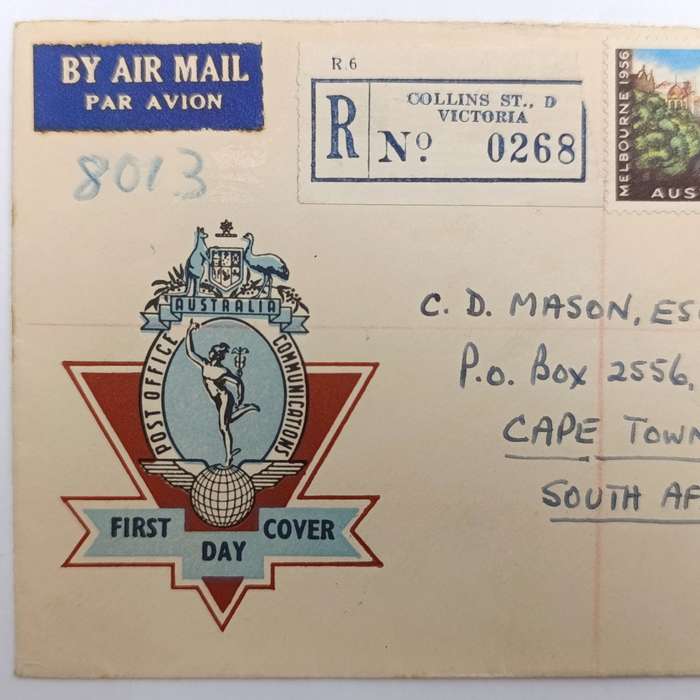 BY AIR MAIL
PAR AVION
R.6
R
COLLINS ST., D
VICTORIA
Nº 0268
MELBOURNE 1956
AUS
8013
AUSTRALIA
POST OFFICE
COMMUNICATIONS
FIRST DAY COVER
C. D. MASON, ES
P.O. BOX 2556,
CAPE TOWN
SOUTH AF